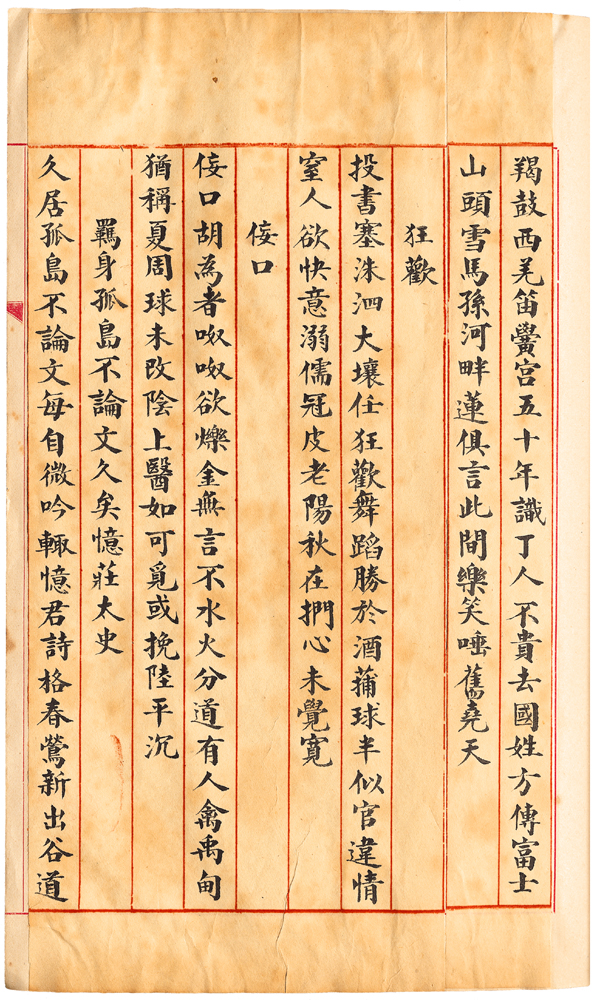 羯鼓西羌笛黌宮五十年識丁人不貴去國姓方傳富士
山頭雪馬孫河畔蓮俱言此間樂笑唾舊堯天
狂歡
投書塞洙泗大壤任狂歡舞蹈勝於酒蒱球半似官違情
窒人欲快意溺儒冠皮老陽秋在捫心未覺寬
佞口
佞口胡為者呶呶欲爍金無言不水火分道有人禽禹甸
猶稱夏周球未改陰上醫如可覓或挽陸平沉
羈身孤島不論文久矣憶莊太史
久居孤島不論文每自微吟輙憶君詩格春鶯新出谷道